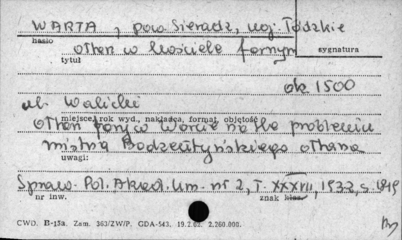 WARTA, pow. Sieradz, woj. Łódzkie
hasło
sygnatura
ołtarz w kościele farnym
tytuł
ok 1500
wł. Walicki
miejsce i rok wyd., nakładca, format, objętość
Ołtarz farny w Warcie na tle problemu
mistrza Bodzentyńskiego ołtarza
uwagi:
Spraw. Pol. Akad. Um. nr 2, T. XXXVII, 1932, s.
nr inw.
znak klas.
CWD. B-15a. Zam. 363/ZW/P. GDA-543. 19.2.63. 2.260.000.